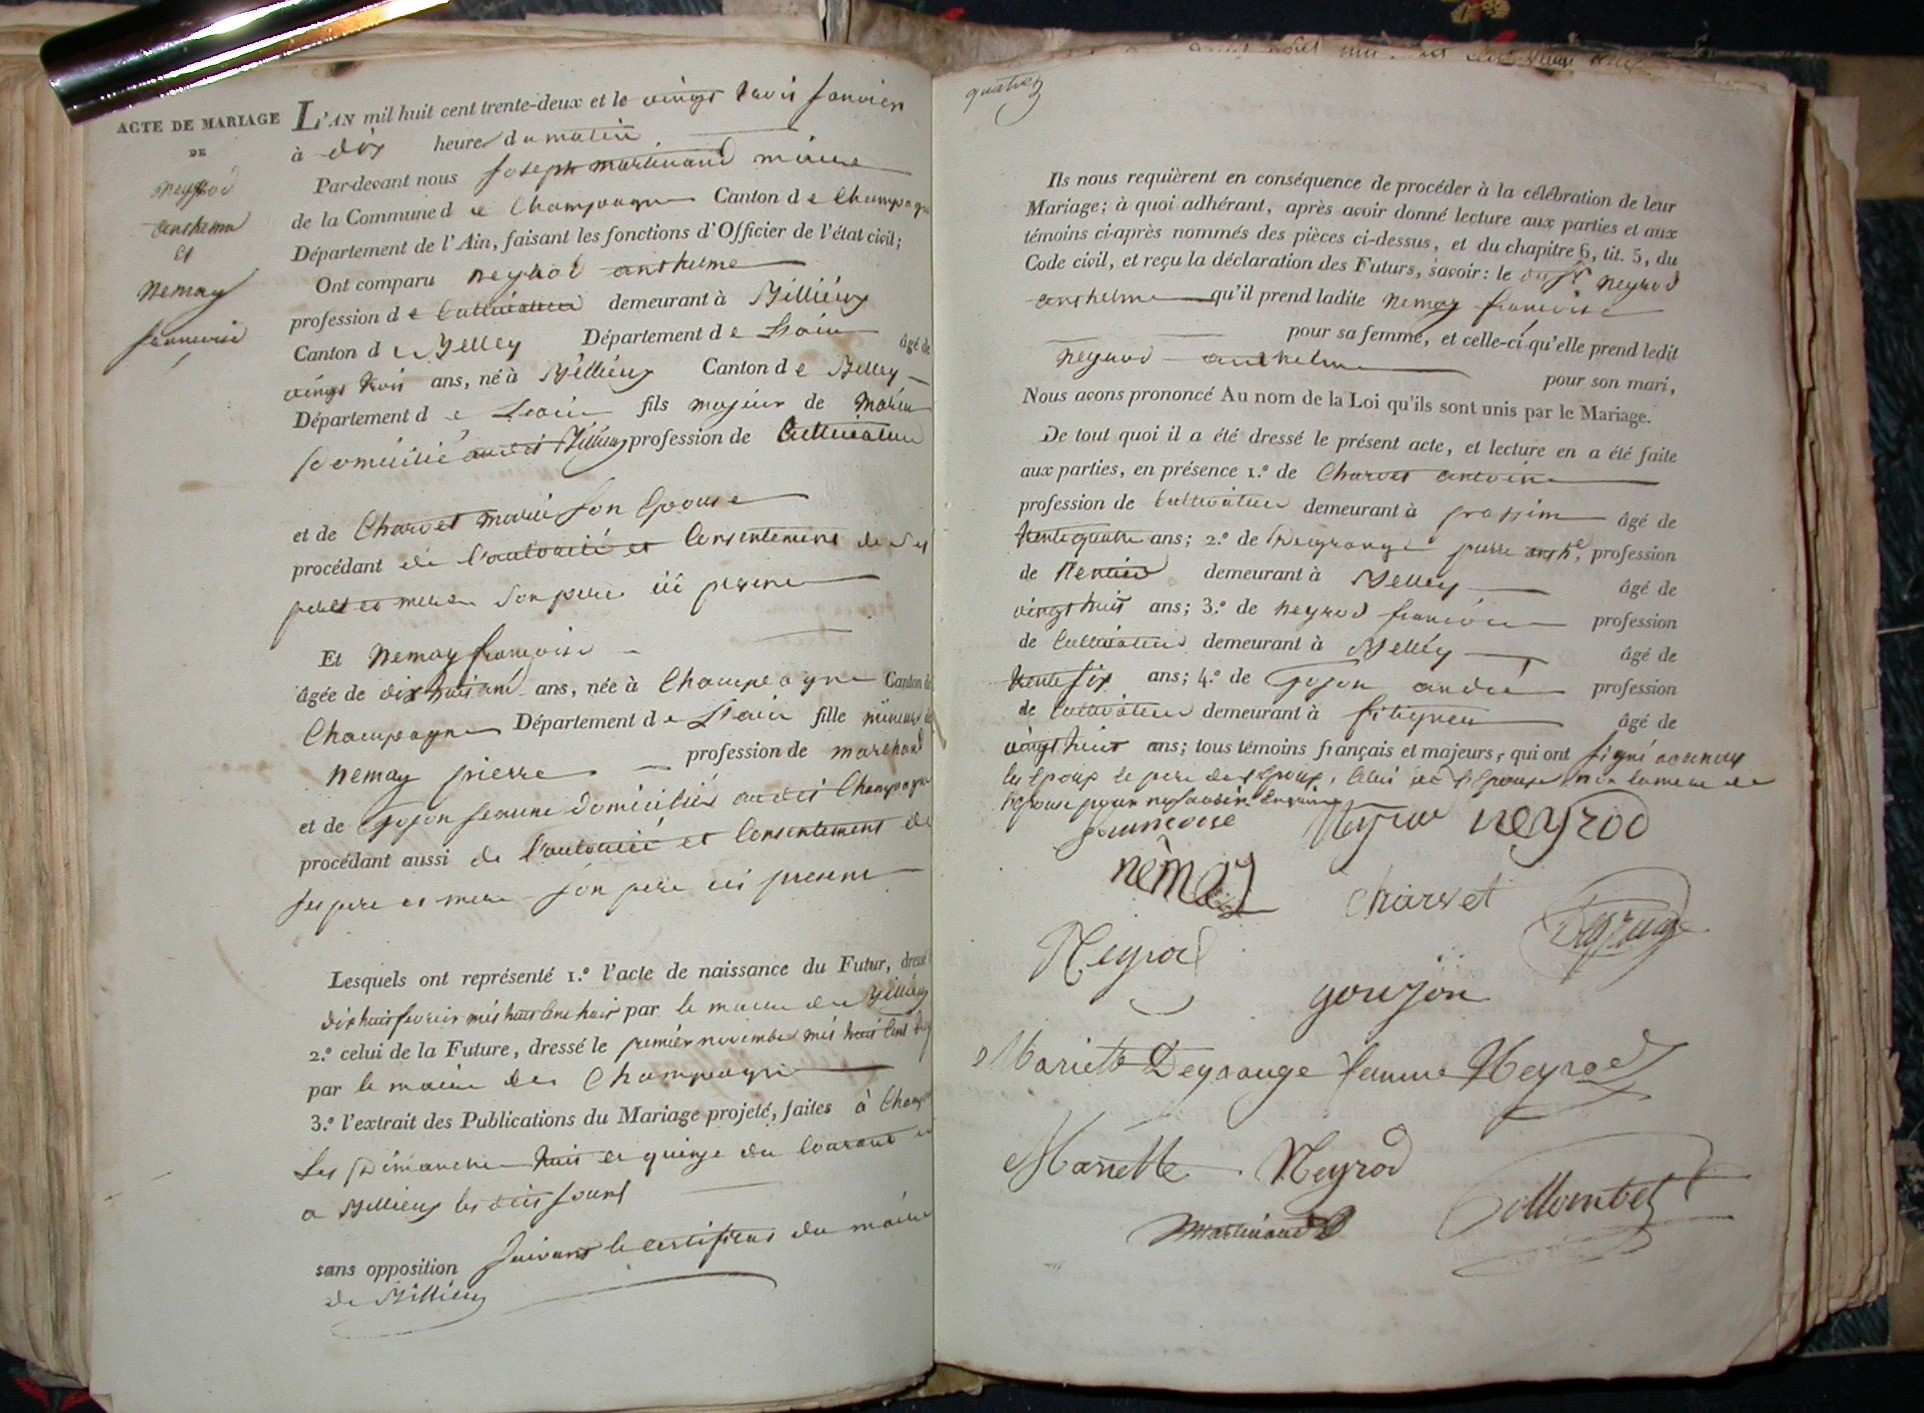 ACTE DE MARIAGE
DE
neyrod
anthelme
et
nemoy
francoise
L'AN mil huit cent trente-deux et le vingt trois janvier
à dix heures du matin
Par-devant nous joseph martinand maire
de la Commune de Champagne Canton de Champagne
Département de l'Ain, faisant les fonctions d'Officier de l'état civil;
Ont comparu neyrod anthelme
profession de Cultivateur demeurant à Billieux
Canton de Belley Département de L'ain âgé de
vingt trois ans, né à Billieux Canton de Belley
Département de L'ain fils majeur de
domicilié audit Billieux profession de Cultivateur
et de Charvet marie son Epouse
procédant de l'autorité et Consentement de ses
pere et mere son pere ici present
Et Nemoy francoise
âgée de dix huit ans, née à Champagne Canton de
Champagne Département de L'ain fille mineure de
nemoy pierre profession de marchand
et de Gojon jeanne domiciliés audit Champagne
procédant aussi de l'autorité et Consentement de
ses pere et mere son pere ici present
Lesquels ont représenté 1.º l'acte de naissance du Futur, dressé
dix huit fevrier mil huit cent huit par le maire de Billieux
2.º celui de la Future, dressé le premier novembre mil huit Cent
par le maire de Champagne
3.º l'extrait des Publications du Mariage projeté, faites à Champagne
Les Dimanche huit et quinze du Courant et
a Billieux les dits jours
sans opposition suivant le certificat du maire
de Billieux
Ils nous requièrent en conséquence de procéder à la célébration de leur
Mariage; à quoi adhérant, après avoir donné lecture aux parties et aux
témoins ci-après nommés des pièces ci-dessus, et du chapitre 6, tit. 5, du
Code civil, et reçu la déclaration des Futurs, savoir: le neyrod
anthelme qu'il prend ladite nemoy francoise
pour sa femme, et celle-ci qu'elle prend ledit
neyrod anthelme pour son mari,
Nous avons prononcé Au nom de la Loi qu'ils sont unis par le Mariage.
De tout quoi il a été dressé le présent acte, et lecture en a été faite
aux parties, en présence 1.º de Charvet antoine
profession de Cultivateur demeurant à âgé de
trente quatre ans; 2.º de Degrange pierre anthe, profession
de Rentier demeurant à Belley âgé de
vingt huit ans; 3.º de neyrod francois profession
de Cultivateur demeurant à Belley âgé de
trente six ans; 4.º de Gojon andré profession
de Cultivateur demeurant à fitignieu âgé de
vingt huit ans; tous témoins français et majeurs, qui ont signé avec nous
les Epoux le pere de l'Epoux, Celui de l'Epouse non la mere de
l'Epouse pour ne savoir
francoise neyrod
nemoy charvet Degrange
Neyrod
goujon
Mariette Degrange femme Neyrod
Mariette Neyrod
martinand Collombet